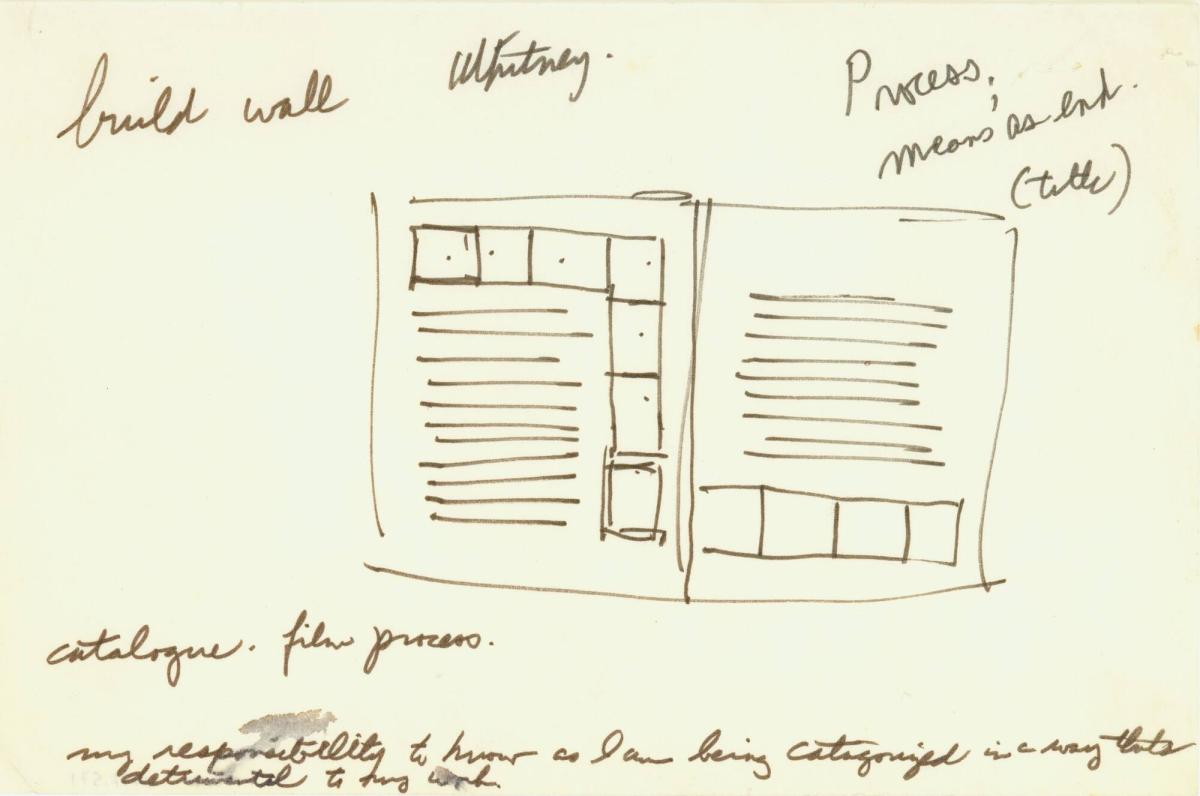 build wall
Whitney.
Process,
means as end.
(title)
catalogue. film process.
my responsibility to know as I am being catagorized in a way thats
detrimental to my work.